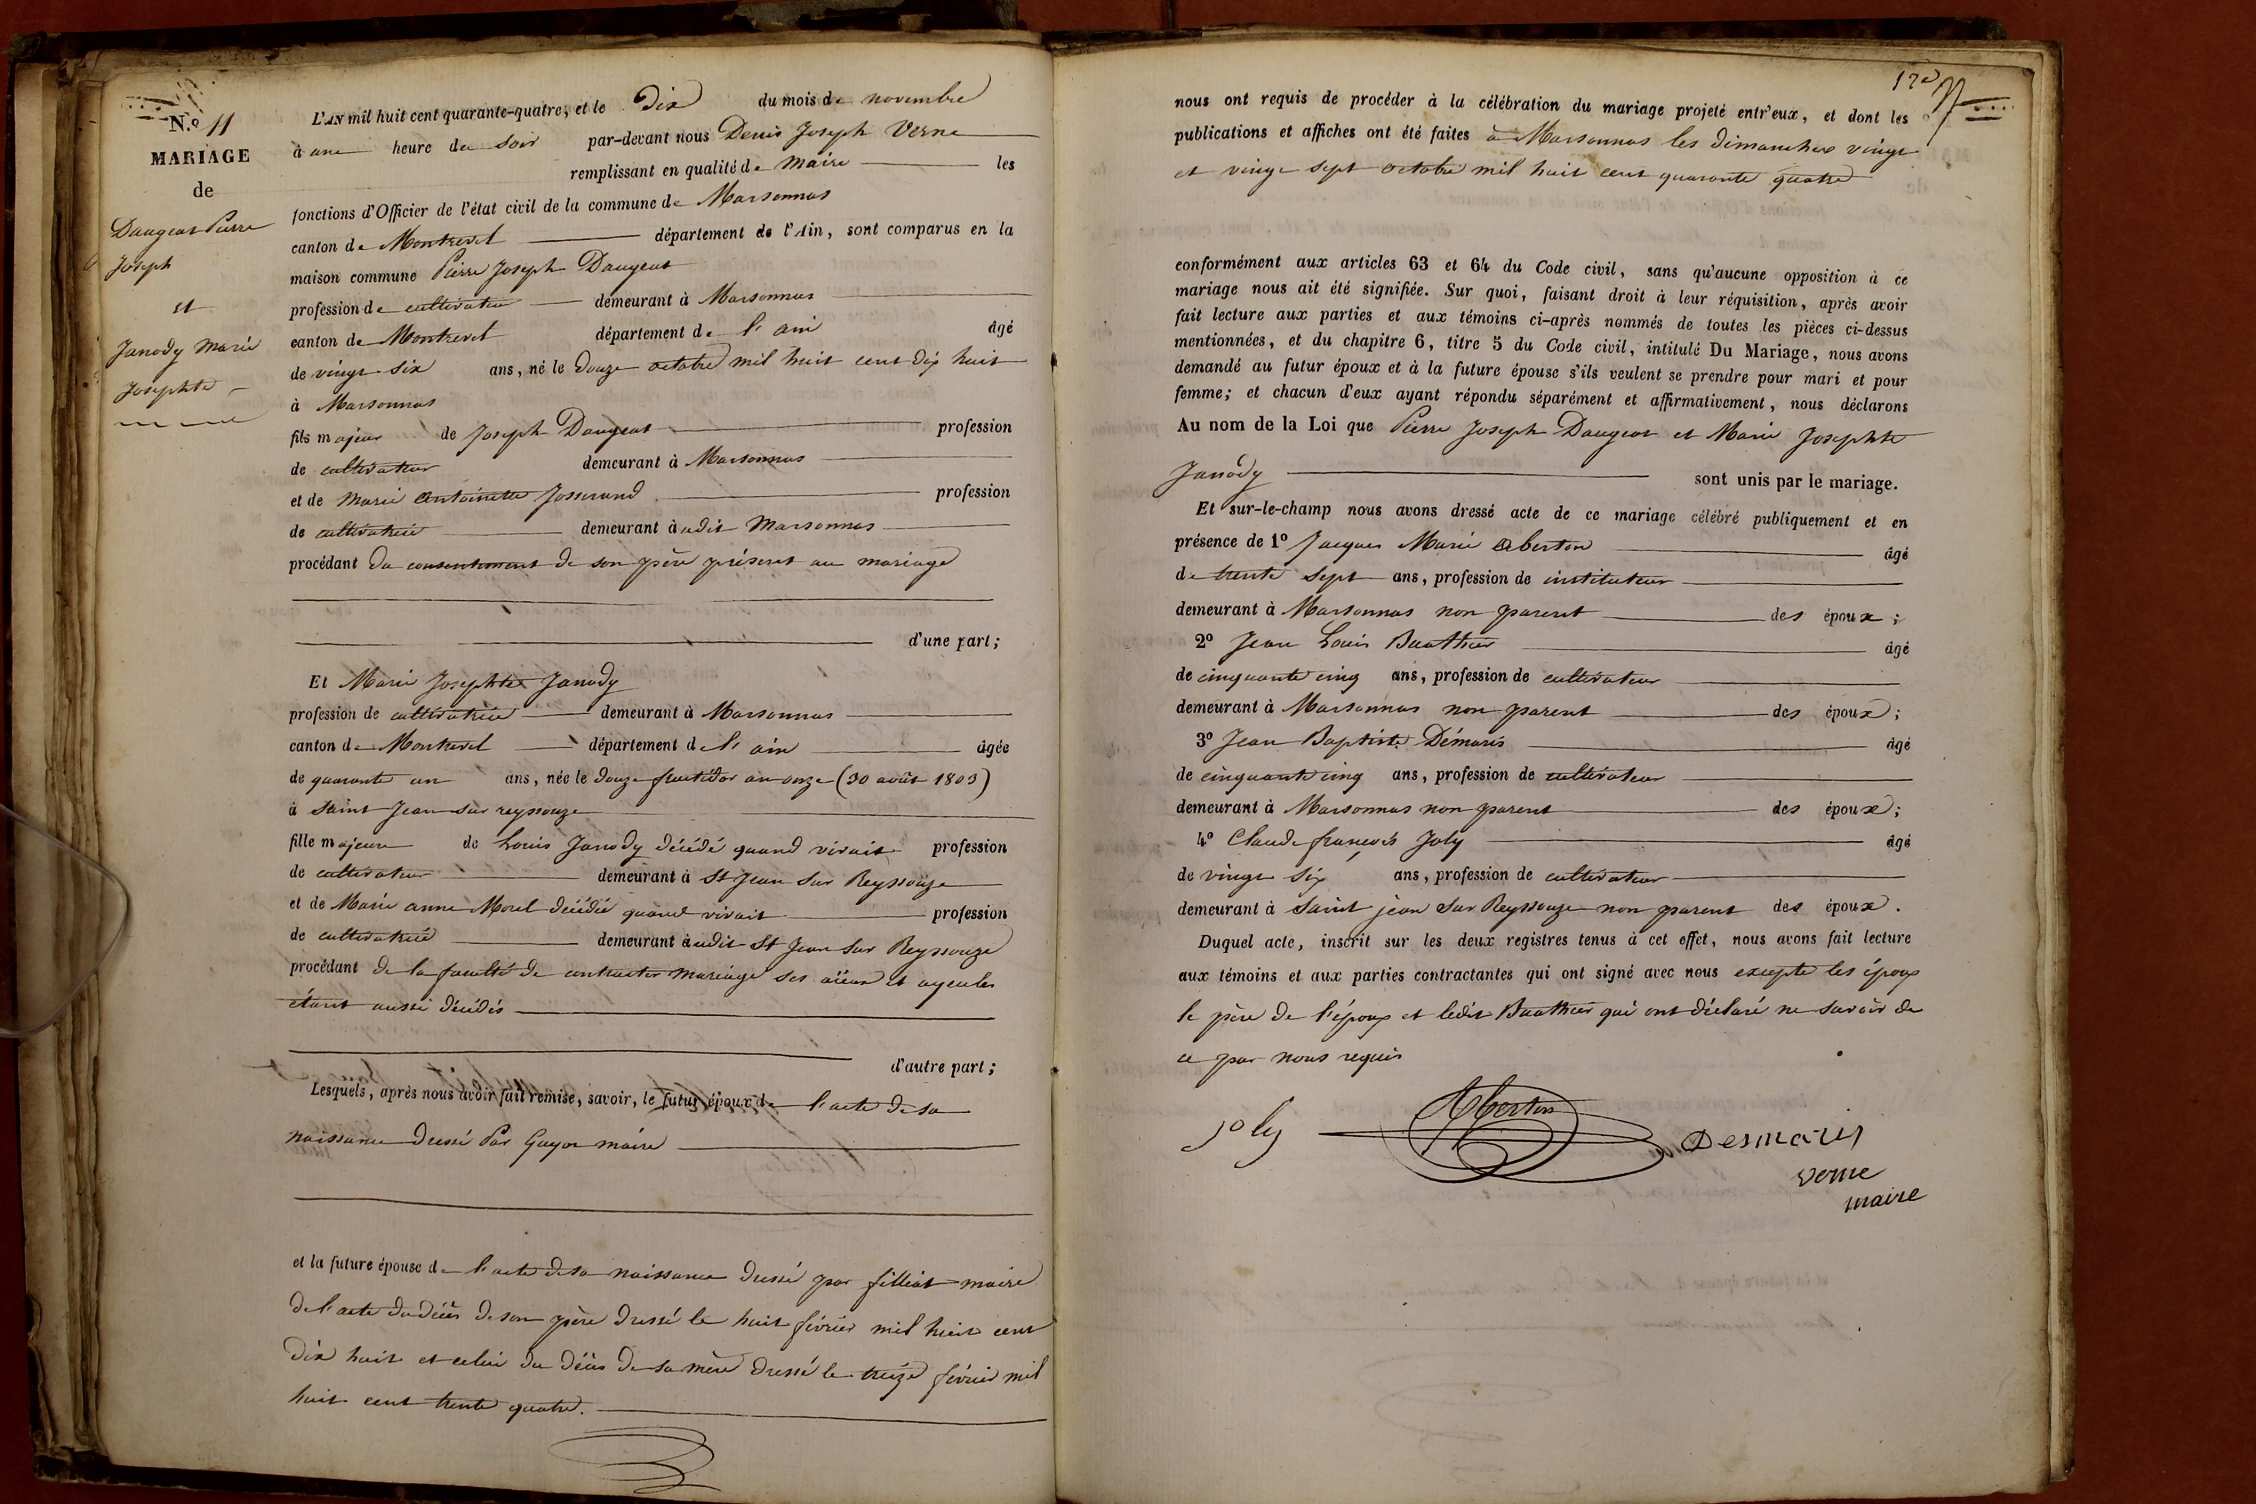 N.º 11
MARIAGE
de
Daugeat Pierre
Joseph
et
Janody Marie
Josephte
L'AN mil huit cent quarante-quatre, et le Dix du mois de novembre
à une heure du soir par-devant nous Denis Joseph Verne
remplissant en qualité de maire les
fonctions d'Officier de l'état civil de la commune de Marsonnas
canton de Montrevel département de l'Ain, sont comparus en la
maison commune Pierre Joseph Daugeat
profession de cultivateur demeurant à Marsonnas
canton de Montrevel département de l'ain âgé
de vingt six ans, né le Douze octobre mil huit cent dix huit
à Marsonnas
fils majeur de Joseph Daugeat profession
de cultivateur demeurant à Marsonnas
et de Marie Antoinette Josserand profession
de cultivatrice demeurant à udit Marsonnas
procédant du consentement de son père présent au mariage
d'une part;
Et Marie Josephte Janody
profession de cultivatrice demeurant à Marsonnas
canton de Montrevel département de l'ain âgée
de quarante un ans, née le douze fructidor an onze (30 août 1803)
à Saint Jean sur reyssouze
fille majeure de Louis Janody décédé quand vivait profession
de cultivateur demeurant à St Jean sur Reyssouze
et de Marie anne Morel décédée quand vivait profession
de cultivatrice demeurant à udit St Jean sur Reyssouze
procédant de la faculté de contracter mariage ses aïeux et ayeules
étant aussi décédés
d'autre part;
Lesquels, après nous avoir fait remise, savoir, le futur époux de l'acte de sa
naissance dressé Par Guyon maire
et la future épouse de l'acte de sa naissance dressé par filliat maire
de l'acte du décès de son père dressé le huit février mil huit cent
dix huit et celui du décès de sa mère dressé le treize février mil
huit cent trente quatre.
nous ont requis de procéder à la célébration du mariage projeté entr'eux, et dont les
publications et affiches ont été faites à Marsonnas les dimanches vingt
et vingt sept octobre mil huit cent quarante quatre
conformément aux articles 63 et 64 du Code civil, sans qu'aucune opposition à ce
mariage nous ait été signifiée. Sur quoi, faisant droit à leur réquisition, après avoir
fait lecture aux parties et aux témoins ci-après nommés de toutes les pièces ci-dessus
mentionnées, et du chapitre 6, titre 5 du Code civil, intitulé Du Mariage, nous avons
demandé au futur époux et à la future épouse s'ils veulent se prendre pour mari et pour
femme; et chacun d'eux ayant répondu séparément et affirmativement, nous déclarons
Au nom de la Loi que Pierre Joseph Daugeat et Marie Josephte
Janody sont unis par le mariage.
Et sur-le-champ nous avons dressé acte de ce mariage célébré publiquement et en
présence de 1º Jacques Marie Aberton âgé
de trente sept ans, profession de instituteur
demeurant à Marsonnas non parent des époux;
2º Jean Louis Buathier âgé
de cinquante cinq ans, profession de cultivateur
demeurant à Marsonnas non parent des époux;
3º Jean Baptiste Démaris âgé
de cinquante cinq ans, profession de cultivateur
demeurant à Marsonnas non parent des époux;
4º Claude françois Joly âgé
de vingt six ans, profession de cultivateur
demeurant à Saint jean sur Reyssouze non parent des époux.
Duquel acte, inscrit sur les deux registres tenus à cet effet, nous avons fait lecture
aux témoins et aux parties contractantes qui ont signé avec nous excepté les époux
le père de l'époux et ledit Buathier qui ont déclaré ne savoir de
ce par nous requis
joly Aberton Desmaris
verne
maire